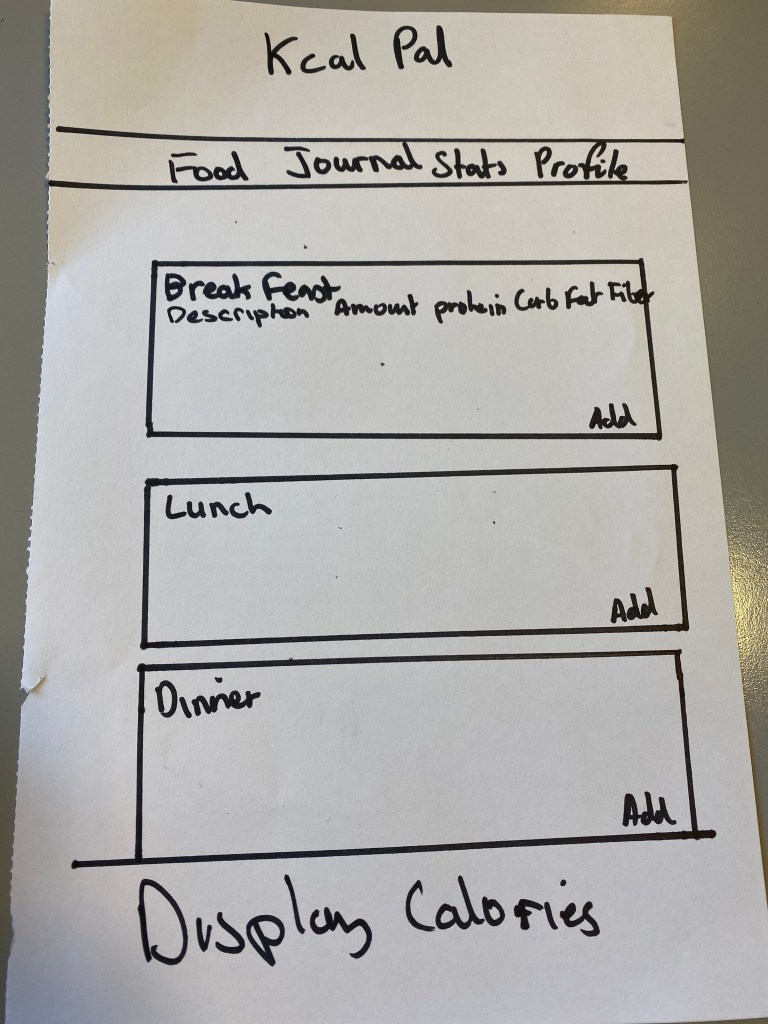 Kcal Pal
Food Journal Stats Profile
Break Feast
Description Amount protein Carb Fat Fiber
Add
Lunch
Add
Dinner
Add
Display Calories